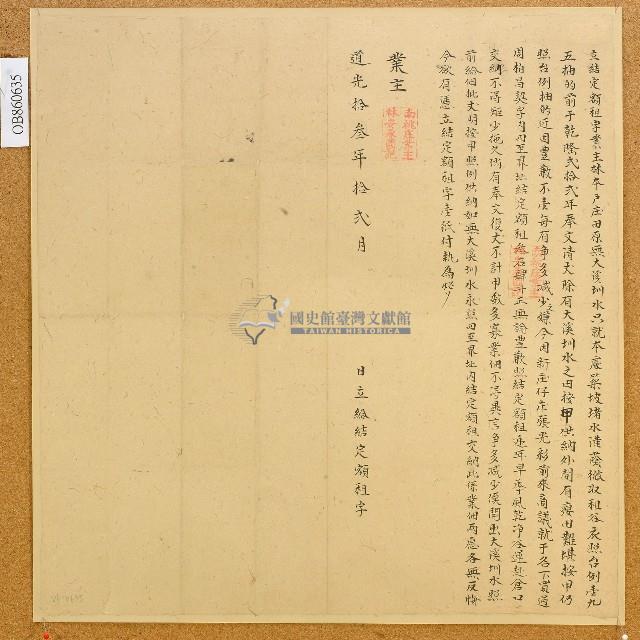 立結定額租字業主林本戶庄田原無大溪圳水只就本處築坡堵水灌蔭徵取租谷衣照台例壹九
五抽的前于乾隆弍拾弍年奉文清丈除有大溪圳水之田按甲供納外間有瘦田難堪按甲仍
照台例抽的近因豊歉不壹每有爭多減少之嫌今因新庄仔庄張光彩前來商議就于名下買過
周柏昌契字內四至界址結定額租叁石肆斗正無論豊歉照結定額租逐年早季風乾净谷運赴倉口
交納不得短少拖欠倘有奉文復丈不計甲数多寡業佃不得異言爭多減少倘開出大溪圳水照
前給佃批丈明按甲照例供納如無大溪圳水永照四至界址內結定額租交納此係業佃两愿各無反悔
今欲有憑立結定額租字壹紙付執為炤
業主
道光拾叁年拾弍月 日立給結定額租字
國史館臺灣文獻館
TAIWAN HISTORICA
OB860635